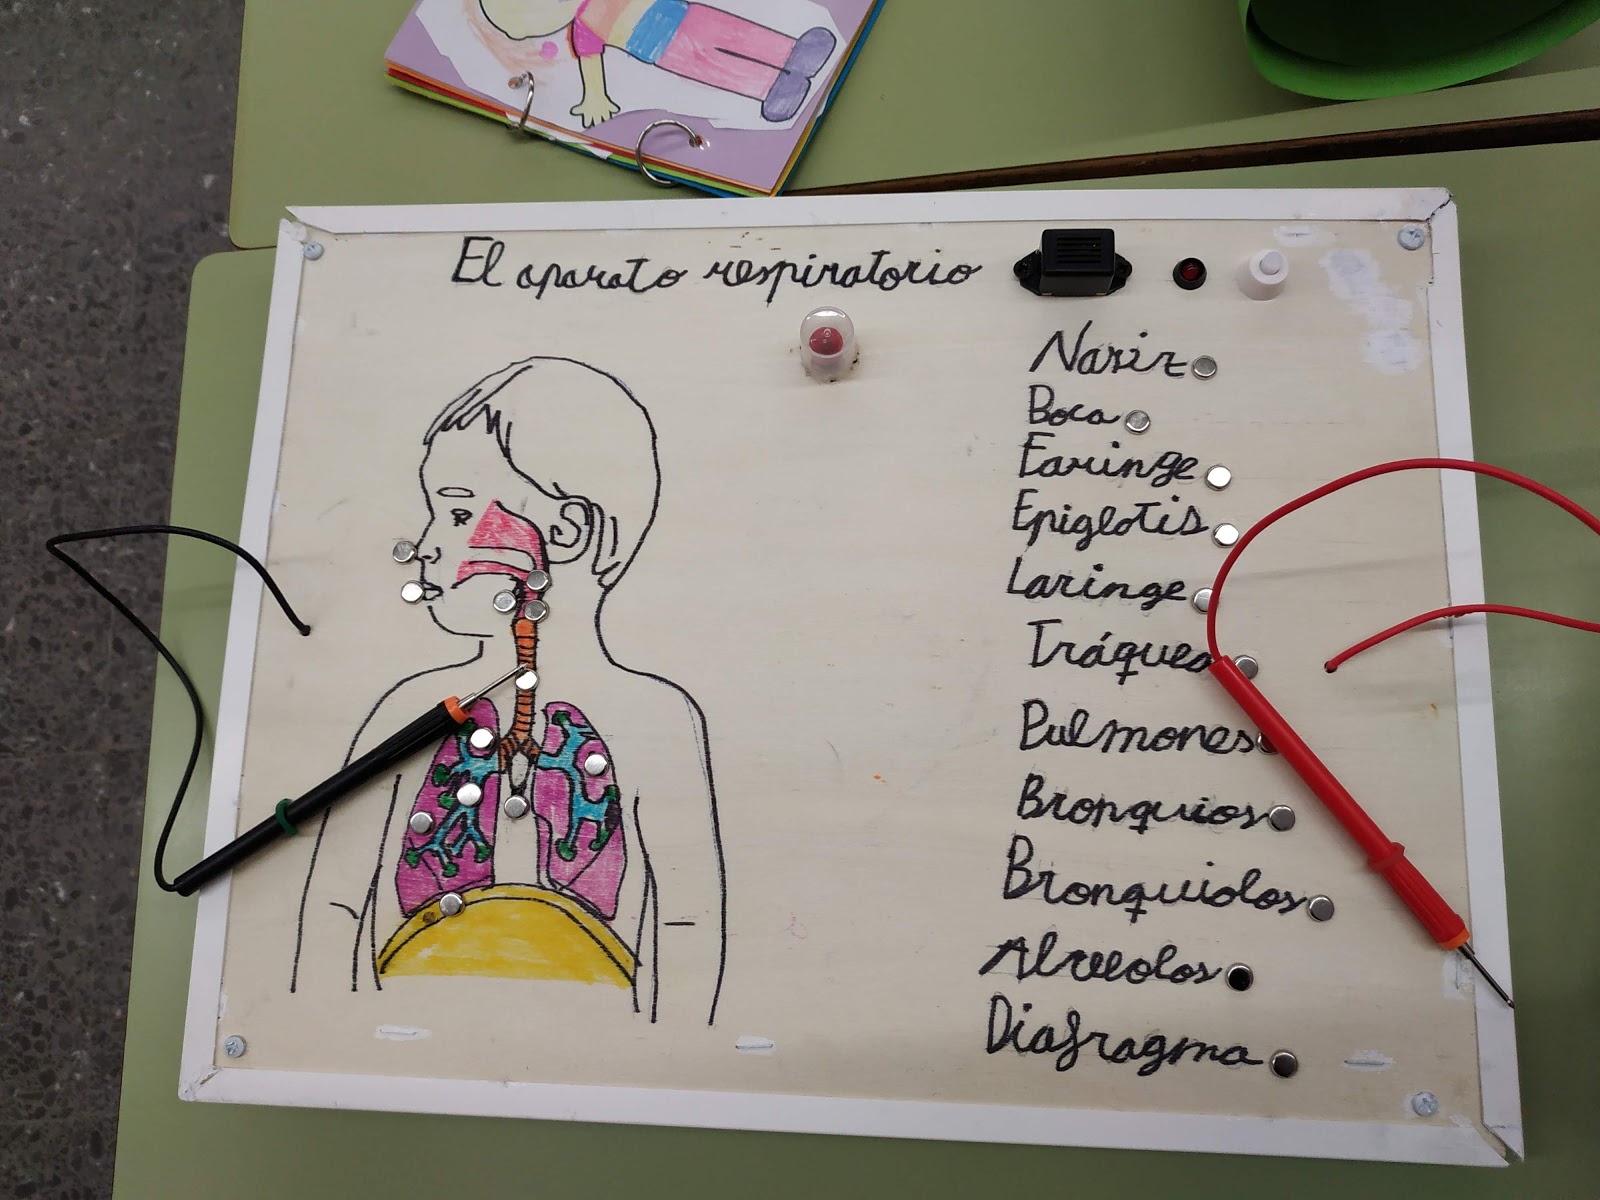 El aparato respiratorio
Nariz
Boca
Faringe
Epiglotis
Laringe
Tráquea
Pulmones
Bronquios
Bronquiolos
Alveolos
Diafragma